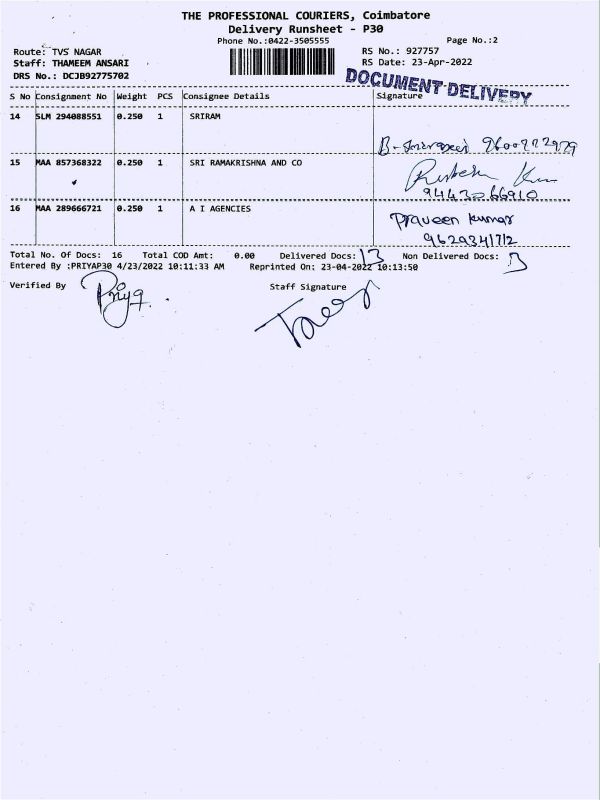 THE PROFESSIONAL COURIERS, Coimbatore
Delivery Runsheet - P30
Phone No.:0422-3505555 Page No.:2
Route: TVS NAGAR RS No.: 927757
Staff: THAMEEM ANSARI RS Date: 23-Apr-2022
DRS No.: DCJB92775702 DOCUMENT DELIVERY
S No Consignment No Weight PCS Consignee Details Signature
14 SLM 294088551 0.250 1 SRIRAM
9600772979
15 MAA 857368322 0.250 1 SRI RAMAKRISHNA AND CO
9443066910
16 MAA 289666721 0.250 1 A I AGENCIES Praveen kumar
9629341712
Total No. Of Docs: 16 Total COD Amt: 0.00 Delivered Docs: 13 Non Delivered Docs: 3
Entered By :PRIYAP30 4/23/2022 10:11:33 AM Reprinted On: 23-04-2022 10:13:50
Verified By Priya. Staff Signature